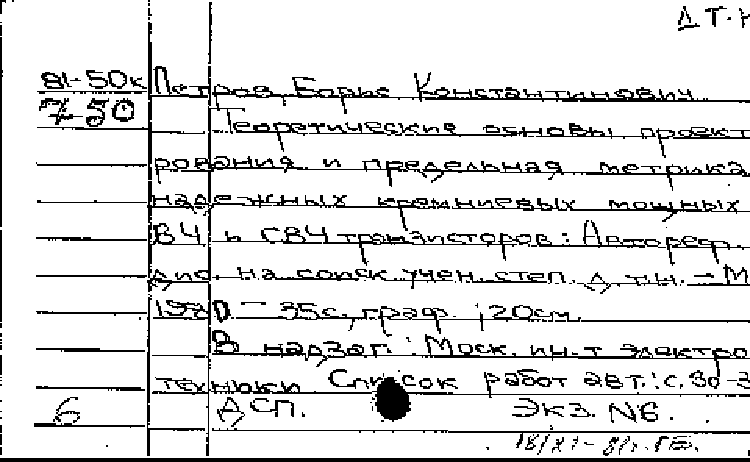 Д Т.Н
81-50к Петров, Борис Константинович
7-50 Теоретические основы проект
рования и предельная метрика
надежных кремниевых мощных
ВЧ и СВЧ транзисторов: Автореф.
дис. на соиск. учен. степ. д.т.н. - М
1980. - 35с., граф. ; 20см.
В надзаг.: Моск. ин-т электро
техники Список работ авт.: с. 30-3
6 ДСП. Экз. N6.
18/XI-81г.